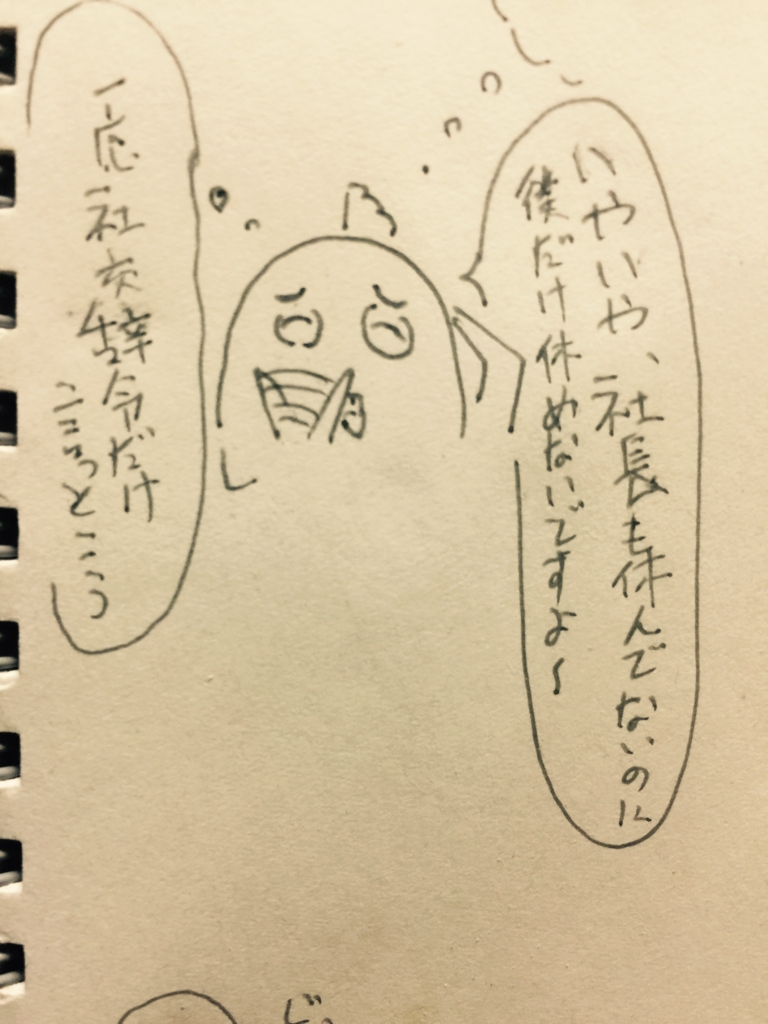 いやいや、社長も休んでないのに
僕だけ休めないですよ〜
一応社交辞令だけ